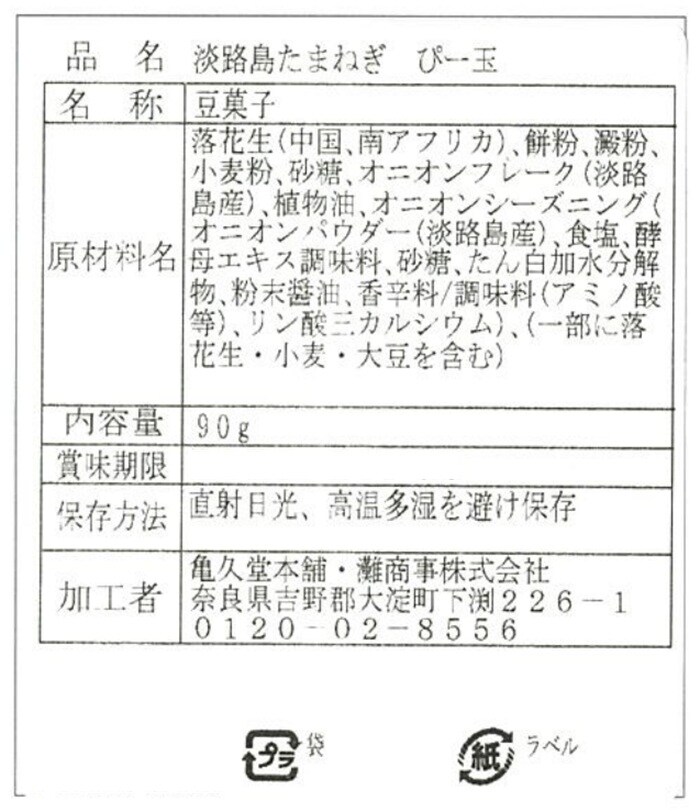 品名 淡路島たまねぎ ぴー玉
名称 豆菓子
原材料名
落花生(中国、南アフリカ)、餅粉、澱粉、
小麦粉、砂糖、オニオンフレーク(淡路
島産)、植物油、オニオンシーズニング(
オニオンパウダー(淡路島産)、食塩、酵
母エキス調味料、砂糖、たん白加水分解
物、粉末醤油、香辛料/調味料(アミノ酸
等)、リン酸三カルシウム)、(一部に落
花生・小麦・大豆を含む)
内容量 90g
賞味期限
保存方法 直射日光、高温多湿を避け保存
加工者
亀久堂本舗・灘商事株式会社
奈良県吉野郡大淀町下渕226-1
0120-02-8556
プラ 袋
紙 ラベル